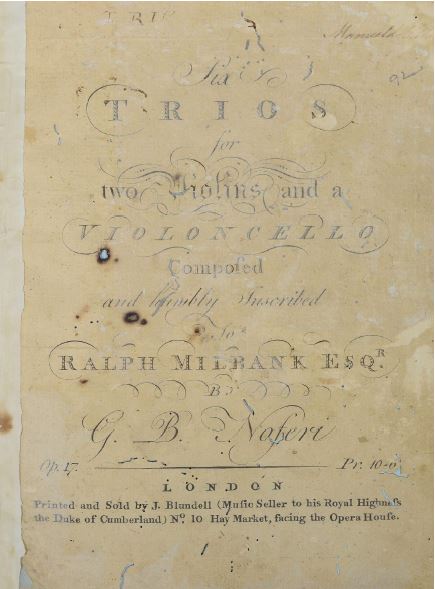 TRIO
Six
TRIOS
for
two Violins and a
VIOLONCELLO
Compoſed
and humbly Inscribed
To
RALPH MILBANK ESQ.R
By
G. B. Noferi
Op. 17. Pr. 10-6
LONDON
Printed and Sold by J. Blundell (Muſic Seller to his Royal Highneſs
the Duke of Cumberland) No. 10 Hay Market, facing the Opera Houſe.